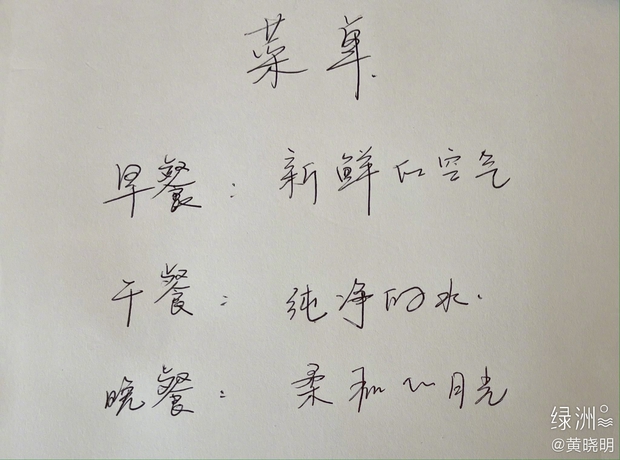 菜单
早餐：新鲜的空气
午餐：纯净的水.
晚餐：柔和的月光
绿洲
@黄晓明